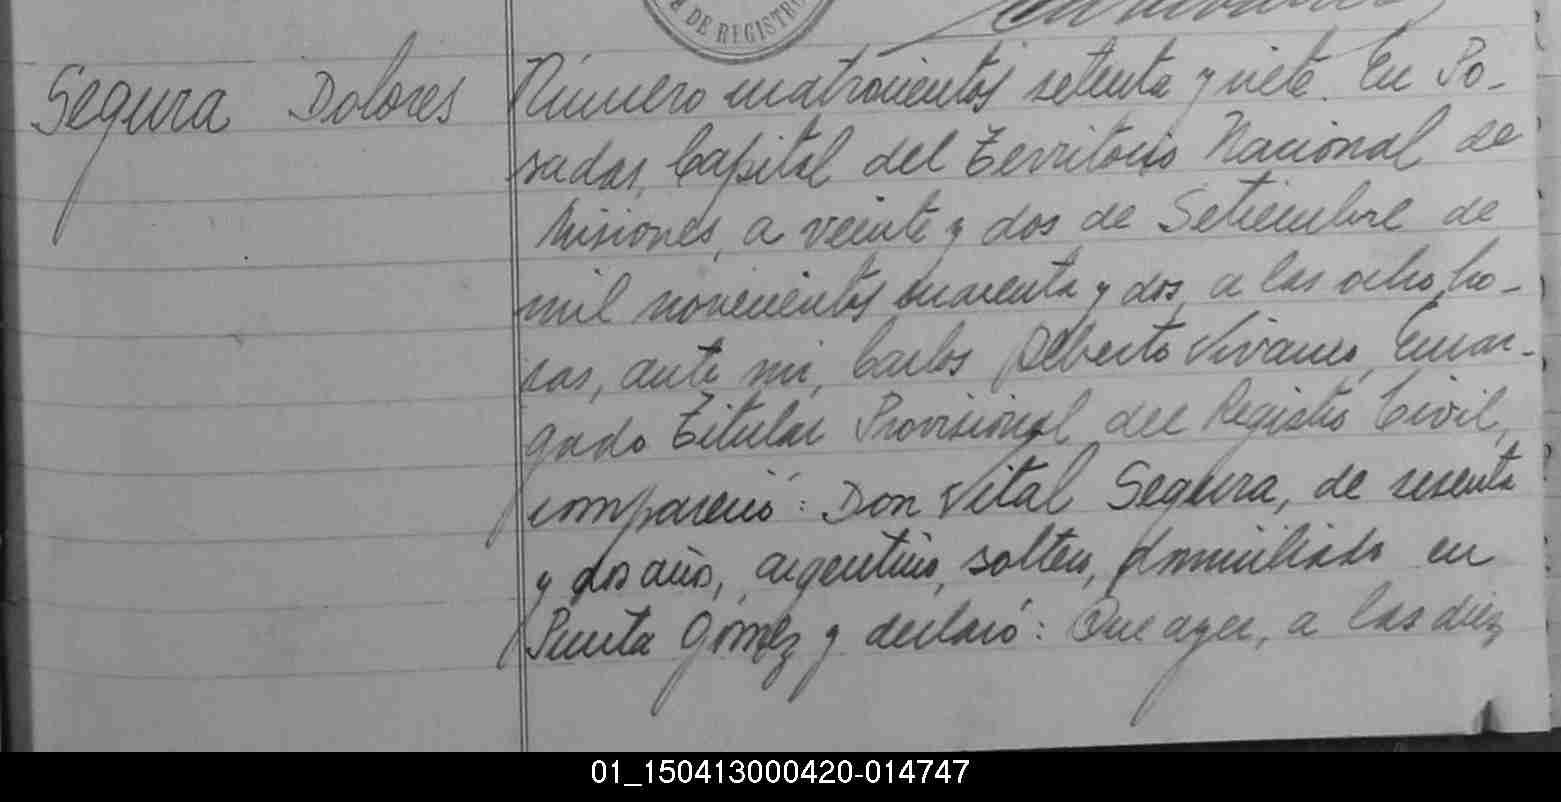 DE REGISTRO
Segura Dolores
Número cuatrocientos setenta y siete. En Po-
sadas, Capital del Territorio Nacional de
Misiones, a veinte y dos de Setiembre de
mil novecientos cuarenta y dos, a las ocho ho-
ras, ante mi, Carlos Alberto Vivanco, Encar-
gado Titular Provisional del Registro Civil,
compareció: Don Vital Segura, de sesenta
y dos años, argentino, soltero, domiciliado en
Punta Gómez y declaró: Que ayer, a las diez
01_150413000420-014747